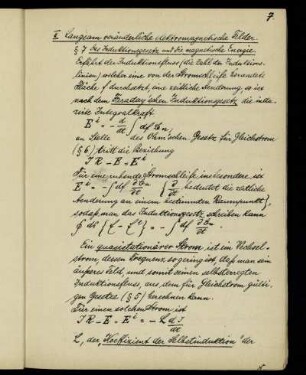 7.
II. Langsam veränderliche elektromagnetische Felder.
§ 7 Das Induktionsgesetz und die magnetische Energie.
Erfährt der Induktionsfluss (die Zahl der Induktions-
linien) welcher eine von der Stromschleife berandete
Fläche f durchsetzt, eine zeitliche Aenderung, so ist
nach dem Faraday'schen Induktionsgesetz die indu-
zierte Integralkraft
= - d/dt ∫ df Bn,
an Stelle des Ohm'schen Gesetz für Gleichstrom
(§ 6) tritt die Beziehung
JR - E = E
Für eine ruhende Stromschleife insbesondere ist
= - ∫ df ∂Bn/∂t { ∂/∂t bedeutet die zeitliche
Aenderung an einem bestimmten Raumpunkt},
sodass man das Induktionsgesetz schreiben kann
= - ∫ df ∂Bn/∂t.
Ein quasistationärer Strom ist ein Wechsel-
strom, dessen Frequenz so gering ist, daß man ein
äusseres Feld, und somit seinen selbsterzeugten
Induktionsfluss, aus dem für Gleichstrom gülti-
gen Gesetze (§ 5) berechnen kann.
Für einen solchen Strom ist
JR - E = E = - L dJ/dt
L, der "Koeffizient der Selbstinduktion" der